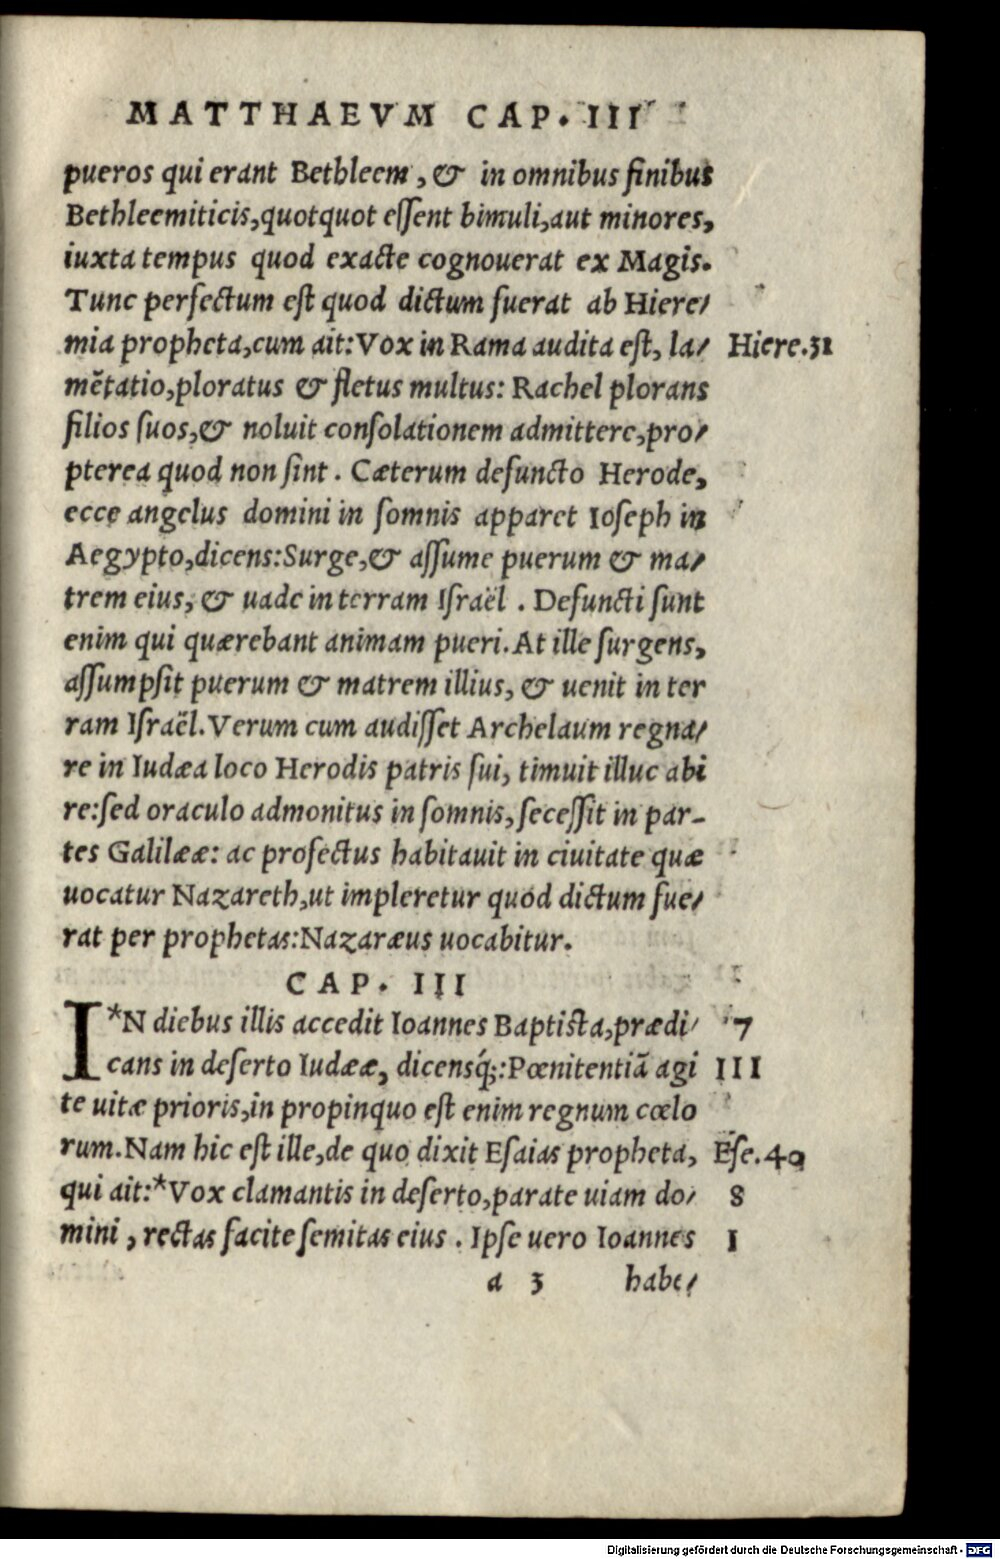 MATTHAEVM CAP. III
pueros qui erant Bethleem, & in omnibus finibus
Bethleemiticis, quotquot eſſent bimuli, aut minores,
iuxta tempus quod exacte cognouerat ex Magis.
Tunc perfectum eſt quod dictum fuerat ab Hiere/
mia propheta, cum ait: Vox in Rama audita eſt, la/ Hiere.31
mētatio, ploratus & fletus multus: Rachel plorans
filios ſuos, & noluit conſolationem admittere, pro/
pterea quod non ſint. Cæterum defuncto Herode,
ecce angelus domini in ſomnis apparet Ioſeph in
Aegypto, dicens: Surge, & aſſume puerum & ma/
trem eius, & uade in terram Iſraël. Defuncti ſunt
enim qui quærebant animam pueri. At ille ſurgens,
aſſumpſit puerum & matrem illius, & uenit in ter
ram Iſraël. Verum cum audiſſet Archelaum regna/
re in Iudæa loco Herodis patris ſui, timuit illuc abi
re: ſed oraculo admonitus in ſomnis, ſeceſſit in par-
tes Galilææ: ac profectus habitauit in ciuitate quæ
uocatur Nazareth, ut impleretur quod dictum fue/
rat per prophetas: Nazaræus uocabitur.
CAP. III
I*N diebus illis accedit Ioannes Baptiſta, prædi/ 7
cans in deſerto Iudææ, dicensq́;: Pœnitentiā agi III
te uitæ prioris, in propinquo eſt enim regnum cœlo
rum. Nam hic eſt ille, de quo dixit Eſaias propheta, Eſe.40
qui ait:*Vox clamantis in deſerto, parate uiam do/ 8
mini, rectas facite ſemitas eius. Ipſe uero Ioannes 1
a 3 habe/
Digitalisierung gefördert durch die Deutsche Forschungsgemeinschaft - DFG